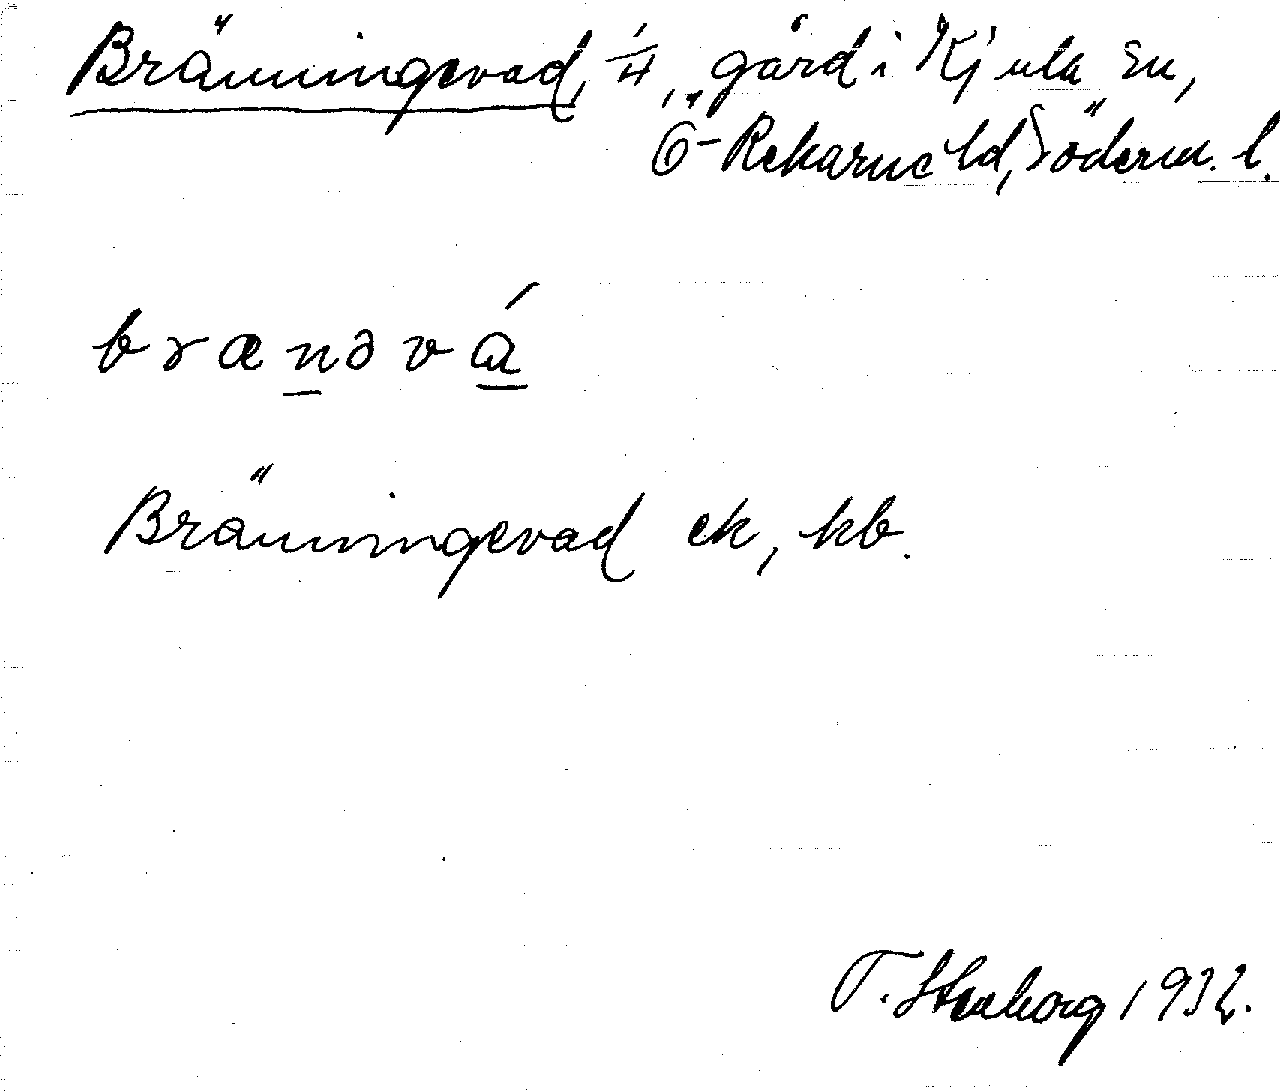 Bränningevad, 1/4, gård i Kjula sn,
Ö-Rekarne hd, Söderm. l.
brænəvá
Bränningevad ek, kb.
T. Stenborg 1932.